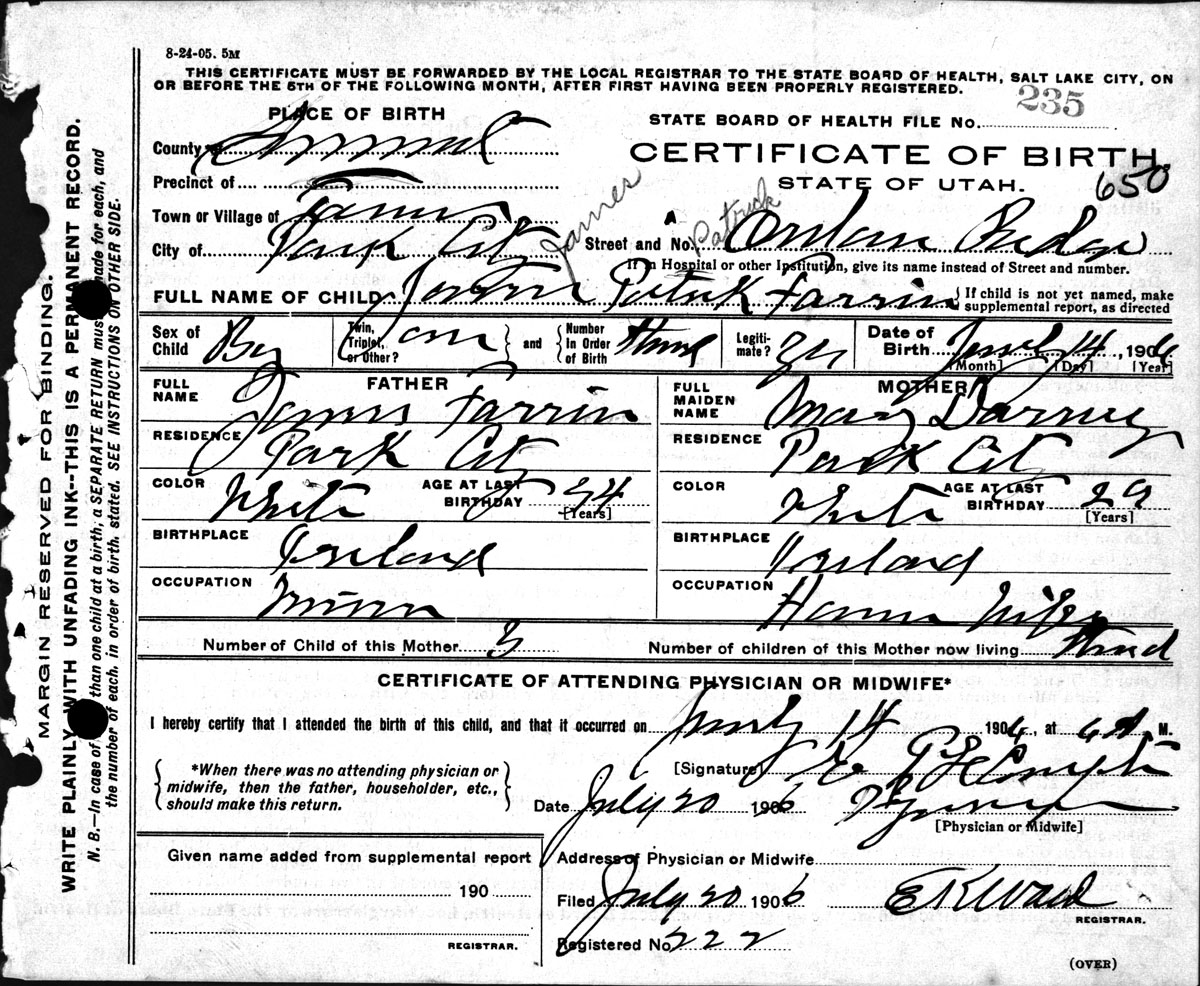 8-24-05. 5M
THIS CERTIFICATE MUST BE FORWARDED BY THE LOCAL REGISTRAR TO THE STATE BOARD OF HEALTH, SALT LAKE CITY, ON
OR BEFORE THE 5TH OF THE FOLLOWING MONTH, AFTER FIRST HAVING BEEN PROPERLY REGISTERED.
235
PLACE OF BIRTH
STATE BOARD OF HEALTH FILE No.
County of Summit
CERTIFICATE OF BIRTH.
Precinct of
STATE OF UTAH.
650
Town or Village of
James
Patrick
City of Park City
Street and No.
If in Hospital or other Institution, give its name instead of Street and number.
FULL NAME OF CHILD Patrick Farrin
If child is not yet named, make
supplemental report, as directed
Sex of Child Boy
Twin, Triplet, or Other?
and
Number In Order of Birth
Legiti-mate?
Date of Birth 14, 1906
[Month] [Day] [Year]
FATHER
MOTHER
FULL NAME James Farrin
FULL MAIDEN NAME Mary
RESIDENCE Park City
RESIDENCE Park City
COLOR White AGE AT LAST BIRTHDAY 34 [Years]
COLOR White AGE AT LAST BIRTHDAY 29 [Years]
BIRTHPLACE Ireland
BIRTHPLACE Ireland
OCCUPATION Miner
OCCUPATION House Wife
Number of Child of this Mother 3
Number of children of this Mother now living
CERTIFICATE OF ATTENDING PHYSICIAN OR MIDWIFE*
I hereby certify that I attended the birth of this child, and that it occurred on 14 1906, at 6 A M.
*When there was no attending physician or
midwife, then the father, householder, etc.,
should make this return.
[Signature]
Date July 20 1906
[Physician or Midwife]
Given name added from supplemental report
190
REGISTRAR.
Address of Physician or Midwife
Filed July 20 1906 E K Ward
REGISTRAR.
Registered No. 222
(OVER)
MARGIN RESERVED FOR BINDING.
WRITE PLAINLY WITH UNFADING INK--THIS IS A PERMANENT RECORD.
N. B.—In case of than one child at a birth, a SEPARATE RETURN must made for each, and
the number of each, in order of birth, stated. SEE INSTRUCTIONS ON OTHER SIDE.